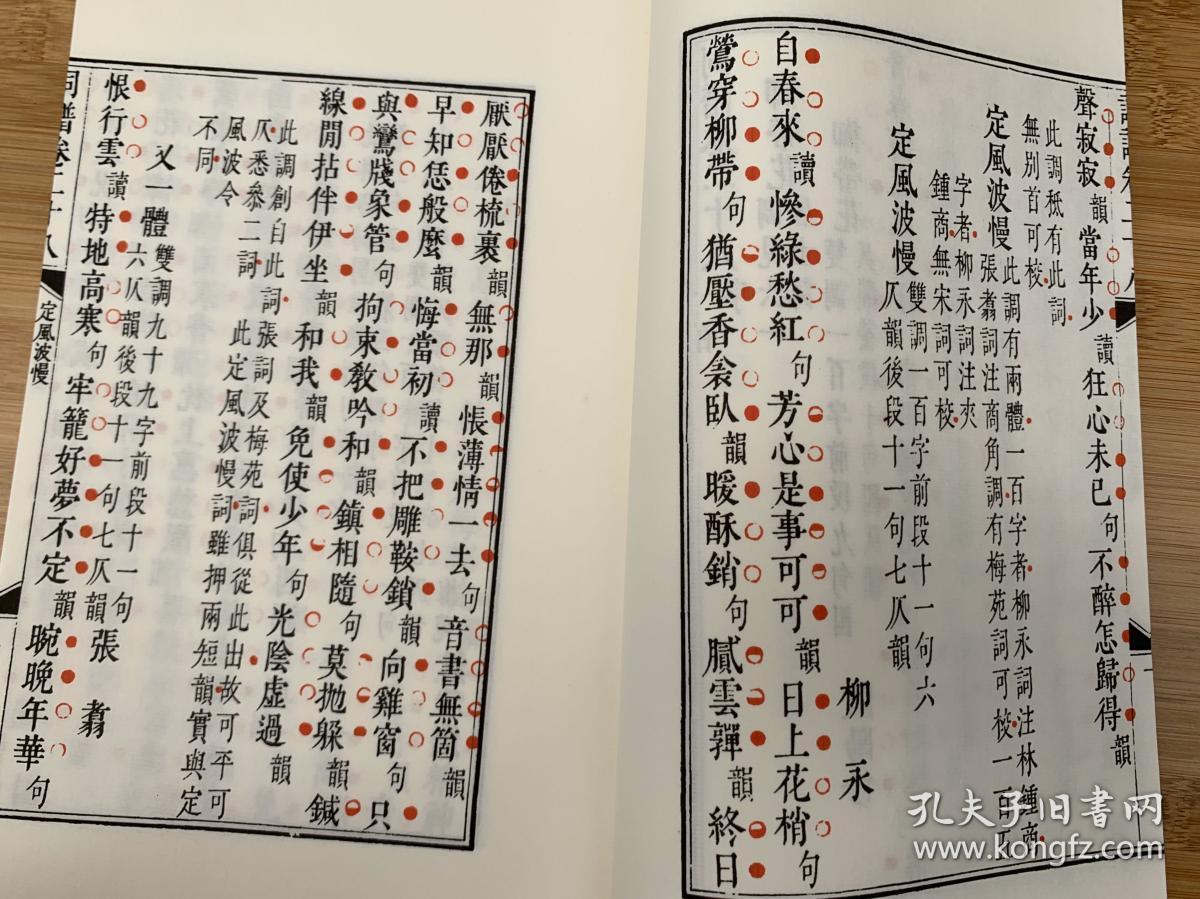 聲寂寂韻當年少讀狂心未已句不醉怎歸得韻
此調秪有此詞
無别首可校
定風波慢此調有兩體一百字者柳永詞注林鍾商
張翥詞注商角調有梅苑詞可校一百五
字者柳永詞注夾
鍾商無宋詞可校
定風波慢雙調一百字前段十一句六
仄韻後段十一句七仄韻
柳永
自春來讀慘綠愁紅句芳心是事可可韻日上花梢句
鶯穿柳帶句猶壓香衾臥韻暖酥銷句膩雲嚲韻終日
厭厭倦梳裹韻無那韻悵薄情一去句音書無箇韻
早知恁般麼韻悔當初讀不把雕鞍鎖韻向雞窗句只
與鸞牋象管句拘束敎吟和韻鎮相隨句莫抛躲韻鍼
線閒拈伴伊坐韻和我韻免使少年句光陰虛過韻
此調創自此詞張詞及梅苑詞俱從此出故可平可
仄悉叅二詞此定風波慢詞雖押兩短韻實與定
風波令
不同
又一體雙調九十九字前段十一句
六仄韻後段十一句七仄韻
張翥
恨行雲讀特地高寒句牢籠好夢不定韻晼晚年華句
詞譜卷二十八
定風波慢
孔夫子旧书网
www.kongfz.com